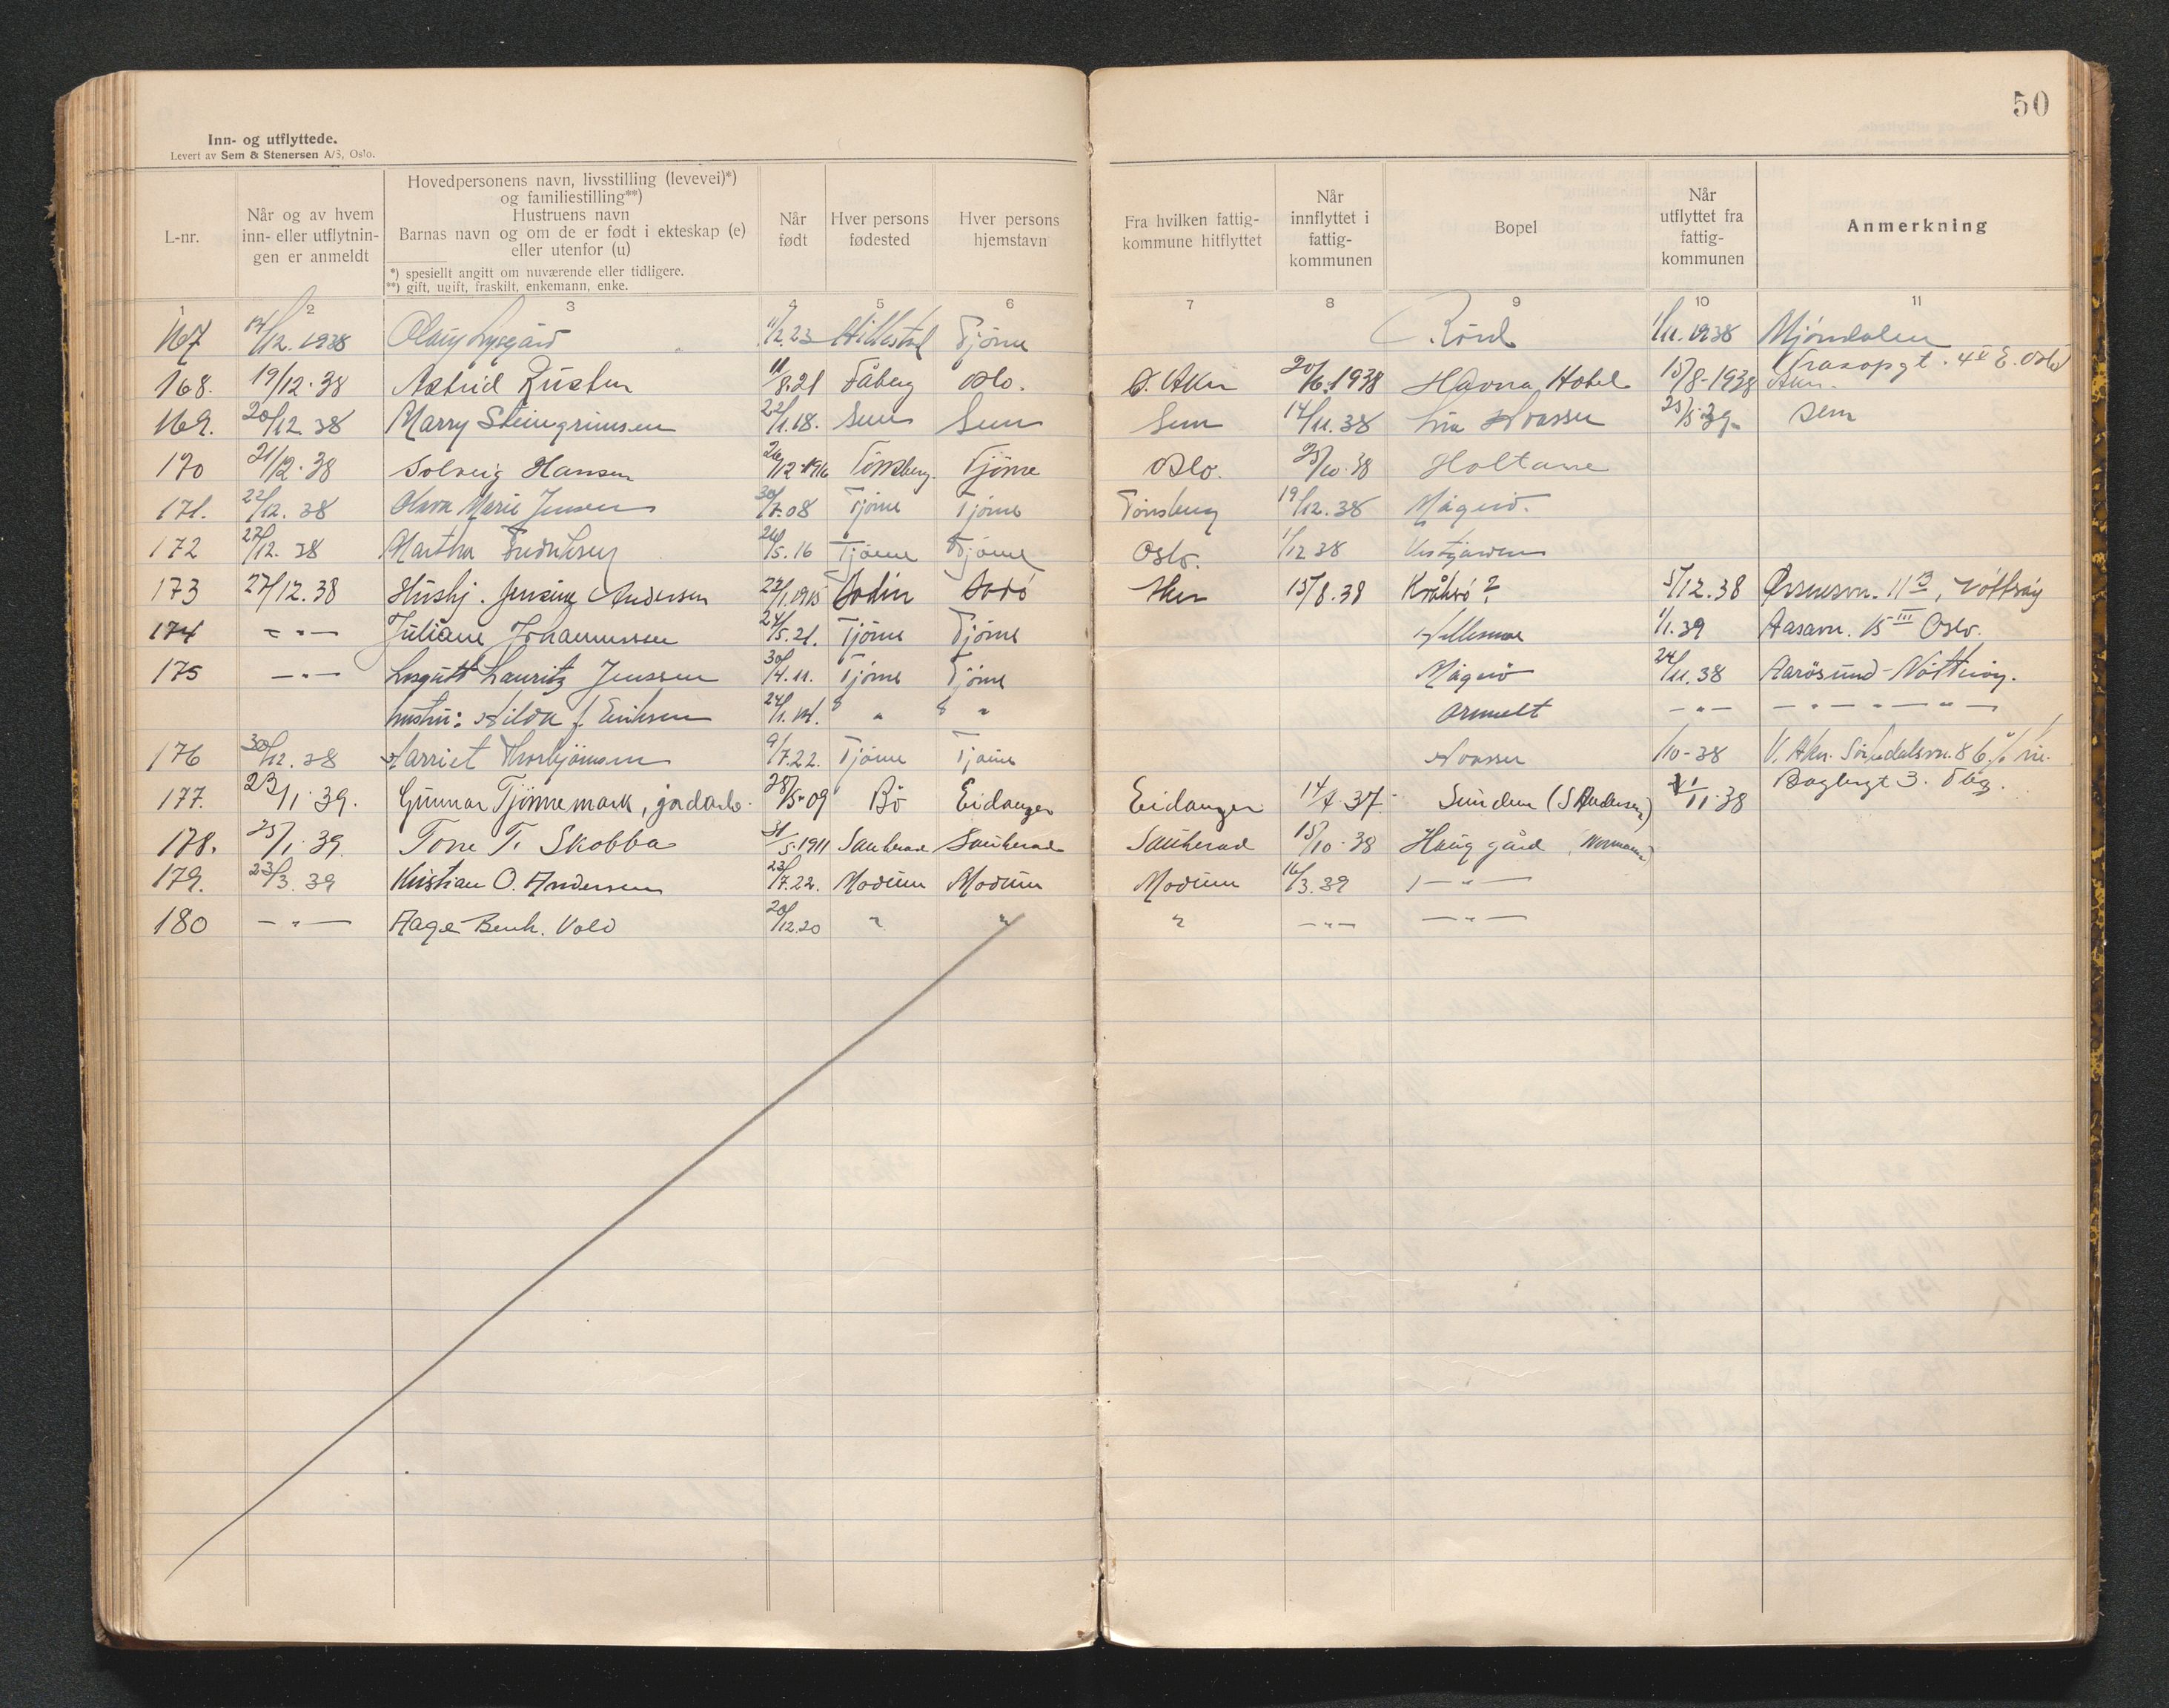 50
Inn- og utflyttede.
Levert av Sem & Stenersen A/S, Oslo.
L-nr.
Når og av hvem inn- eller utflytnin- gen er anmeldt
Hovedpersonens navn, livsstilling (levevei)*)
og familiestilling**)
Hustruens navn
Barnas navn og om de er født i ekteskap (e)
eller utenfor (u)
*) spesiellt angitt om nuværende eller tidligere.
**) gift, ugift, fraskilt, enkemann, enke.
Når født
Hver persons fødested
Hver persons hjemstavn
Fra hvilken fattig- kommune hitflyttet
Når innflyttet i fattig- kommunen
Bopel
Når utflyttet fra fattig- kommunen
Anmerkning
1 2 3 4 5 6 7 8 9 10 11
167 14/12. 1938 Olaug Lysegård 11/12.23 Hillestad Tjöme Rörd 1/11.1938 Mjöndalen
168. 19/12.38 Astrid Rusten 11/8.21 Fåberg Oslo. Ø. Aker 20/6.1938 Havna Hotel 15/8-1938 Aker.
169. 20/12.38 Marry Steingrimsen 22/1.18. Sem Sem Sem 14/11.38 Hvasser 25/5.39 Sem
170 21/12.38 Solveig Hansen 26/12.1916 Tönsberg Tjöme Oslo. 25/10.38 Holtane
171. 22/12. 38 Marie Jensen 30/7.08 Tjöme Tjöme Tönsberg 19/12.38 Magerö.
172 27/12. 38 Martha Fredriksen 26/5.16 Tjöme Tjöme Oslo. 1/12 38
173 27/12.38 Hushj. Jensine Andersen 22/1.1915 Bodin Bodö 15/8.38 Kråkö? 5/12.38
174 - " - Juliane Johannessen 24/5.21. Tjöme Tjöme 1/1.39 Aasavn. 15 III Oslo.
175 - " - Losgutt Lauritz Jenssen 30/4.11. Tjöme Tjöme Magerö 24/11.38 Aarösund - Nötteröy.
hustru: Hilda f. Eriksen 24/1.14. " " Ormelet - " - - " - " - " -
176 30/12.38 Harriet Thorbjörnsen 9/7.22. Tjöme Tjöme Hvasser /10-38
177. 23/1.39. Gunnar Tjönnemark, jordarb. 28/5-09 Bö Eidanger Eidanger 14/4.37. Sundene (S Andersen) 1/11.38 Baglergt 3. Tbg.
178. 25/1.39. Tone T. Skobba 31/5.1911 Sauherad Sauherad Sauherad 15/10.38 Haug gård
179. 23/3.39 Kristian O. Andersen 23/7.22. Modum Modum Modum 16/3.39 - " -
180 - " - Aage Bernh. Vold 20/12.20 " " " - " - - " -